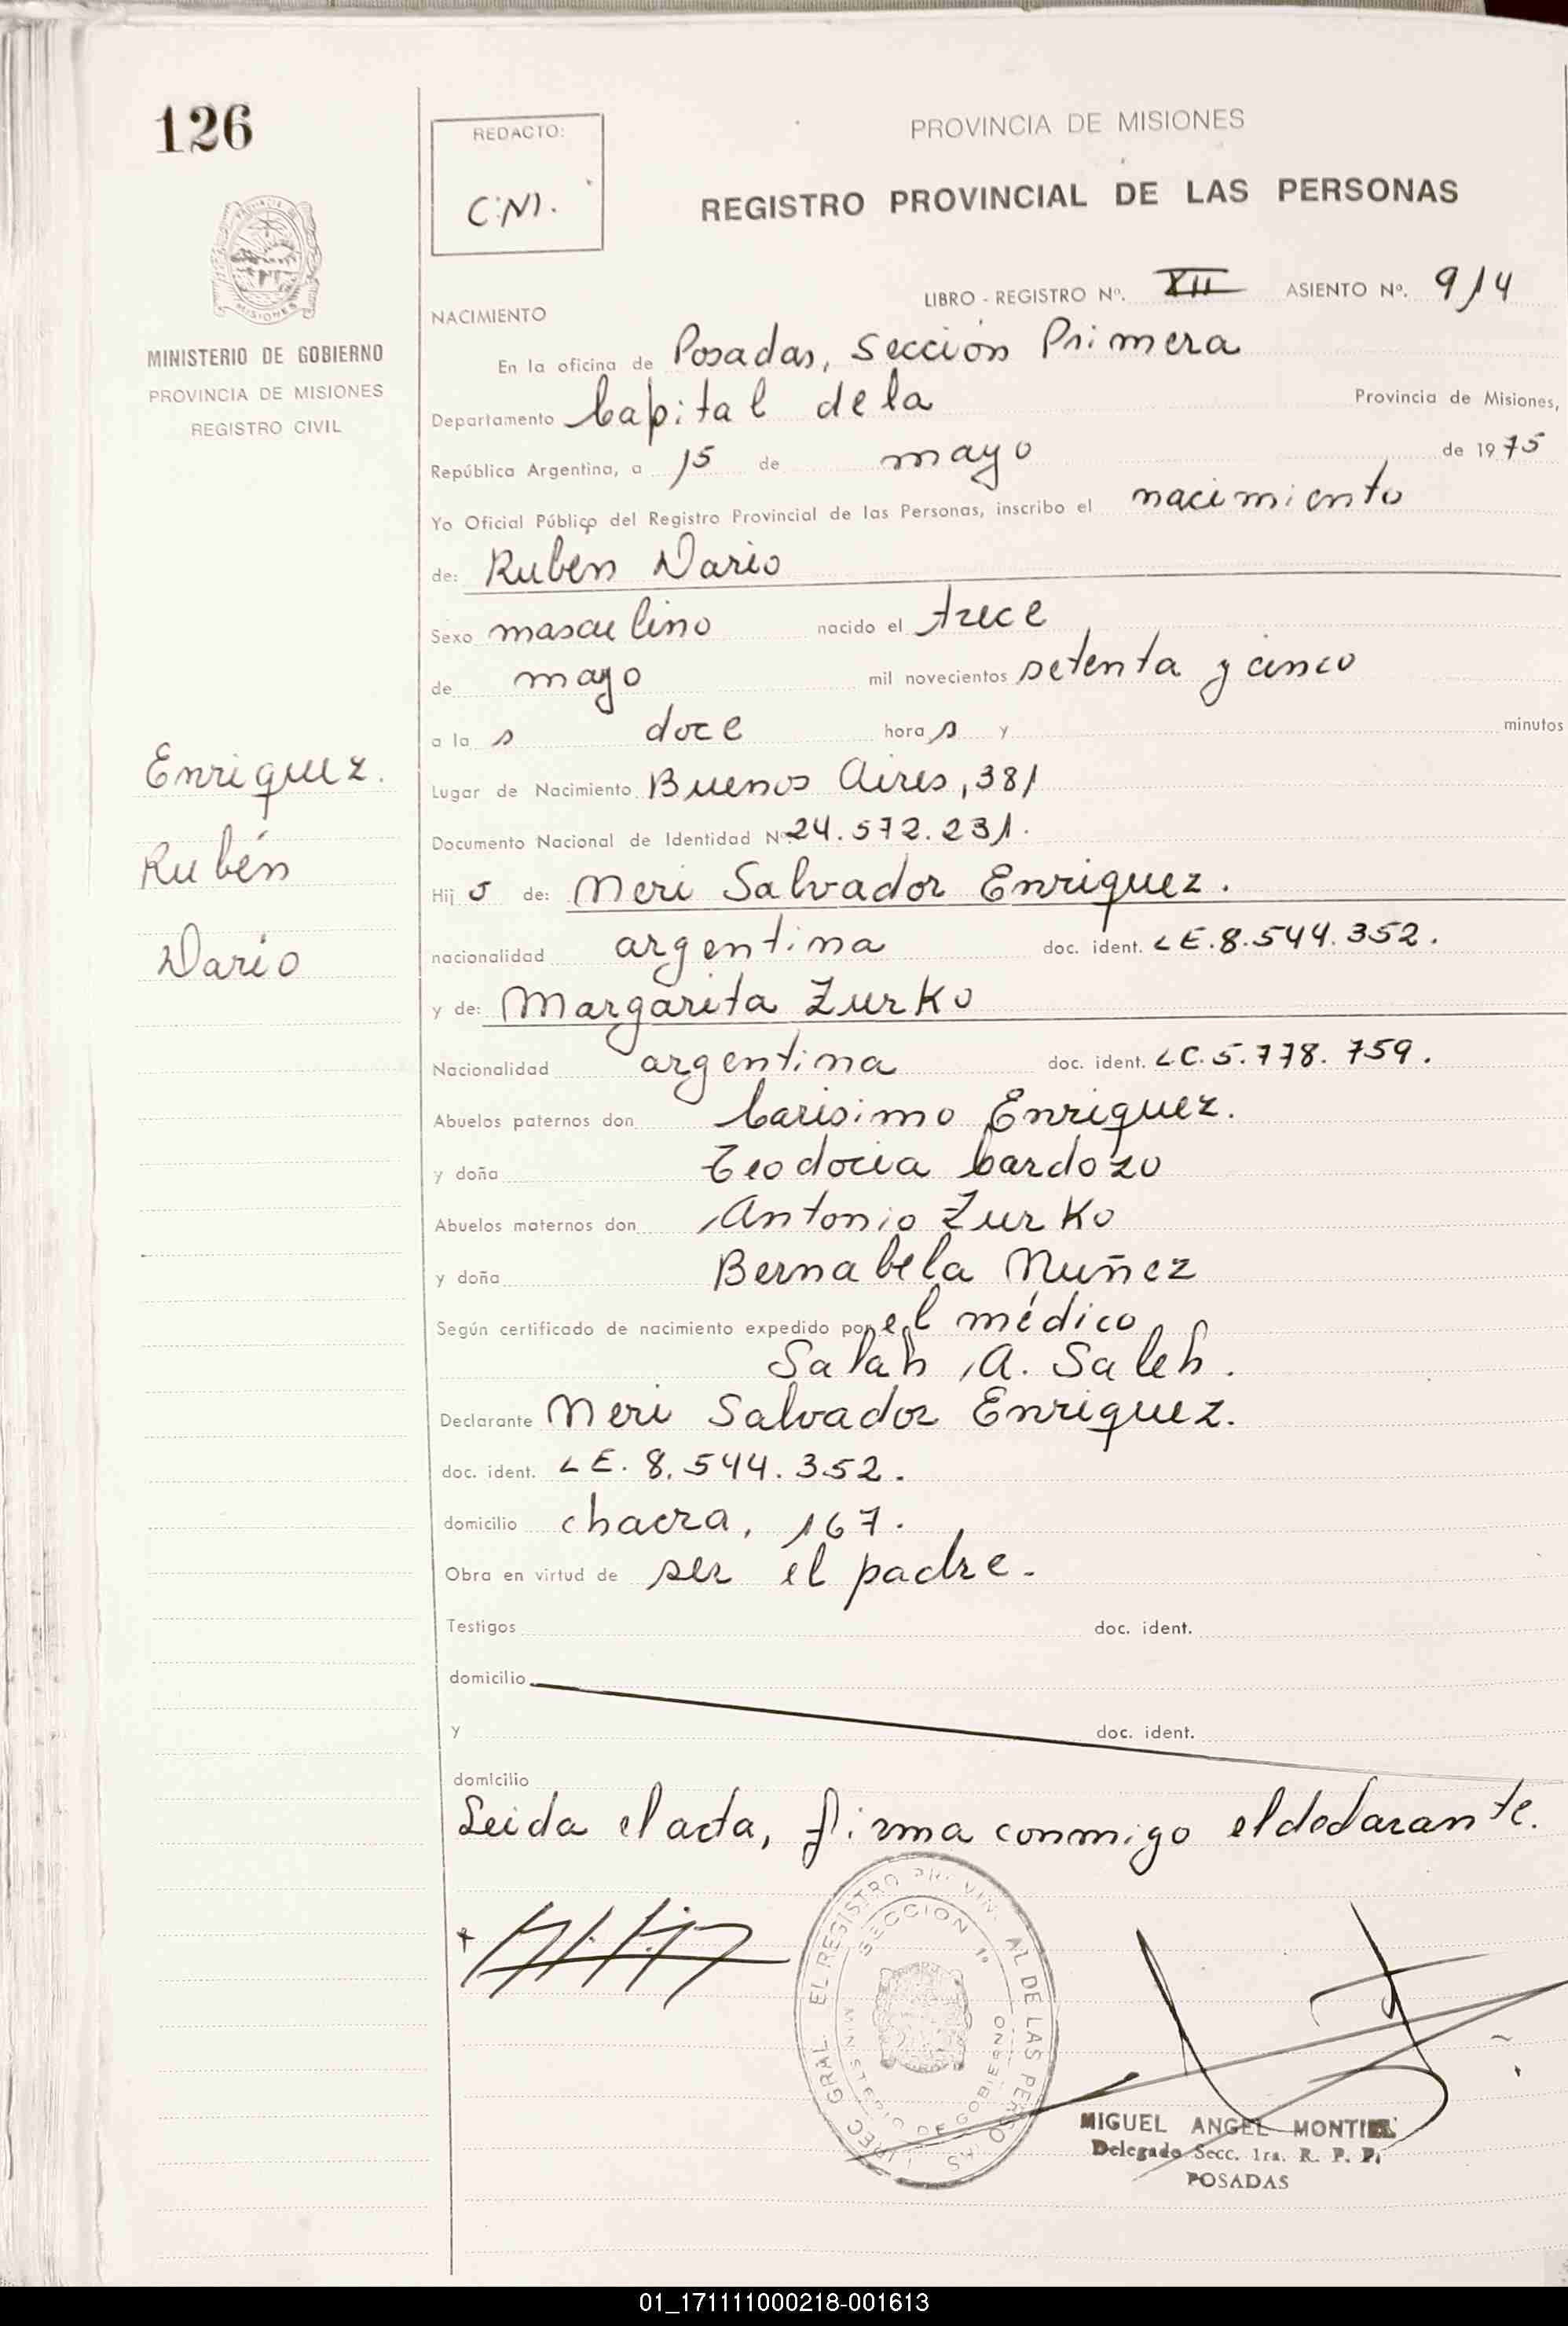 126
REDACTO:
C.N.
PROVINCIA DE MISIONES
REGISTRO PROVINCIAL DE LAS PERSONAS
MISIONES
MINISTERIO DE GOBIERNO
PROVINCIA DE MISIONES
REGISTRO CIVIL
LIBRO - REGISTRO Nº. XII ASIENTO Nº. 914
NACIMIENTO
En la oficina de Posadas, Sección Primera
Departamento Capital de la Provincia de Misiones,
República Argentina, a 15 de mayo de 1975
Yo Oficial Público del Registro Provincial de las Personas, inscribo el nacimiento
de: Ruben Dario
Sexo masculino nacido el trece
de mayo mil novecientos setenta y cinco
a la s doce hora s y minutos
Enriquez.
Rubén
Dario
Lugar de Nacimiento Buenos Aires, 381
Documento Nacional de Identidad Nº 24.572.231.
Hij o de: Neri Salvador Enriquez.
nacionalidad argentina doc. ident. LE.8.544.352.
y de: Margarita Zurko
Nacionalidad argentina doc. ident. LC.5.778.759.
Abuelos paternos don Carisimo Enriquez.
y doña Teodocia Cardozo
Abuelos maternos don Antonio Zurko
y doña Bernabela Nuñez
Según certificado de nacimiento expedido por el médico
Salah A. Saleh.
Declarante Neri Salvador Enriquez.
doc. ident. LE. 8.544.352.
domicilio chacra, 167.
Obra en virtud de ser el padre.
Testigos doc. ident.
domicilio
y doc. ident.
domicilio
Leida el acta, firma conmigo el declarante.
DIREC GRAL. EL REGISTRO PROVINCIAL DE LAS PERSONAS
SECCION 1ª
MINISTERIO DE GOBIERNO
MIGUEL ANGEL MONTIEL
Delegado Secc. 1ra. R. P. P.
POSADAS
01_171111000218-001613